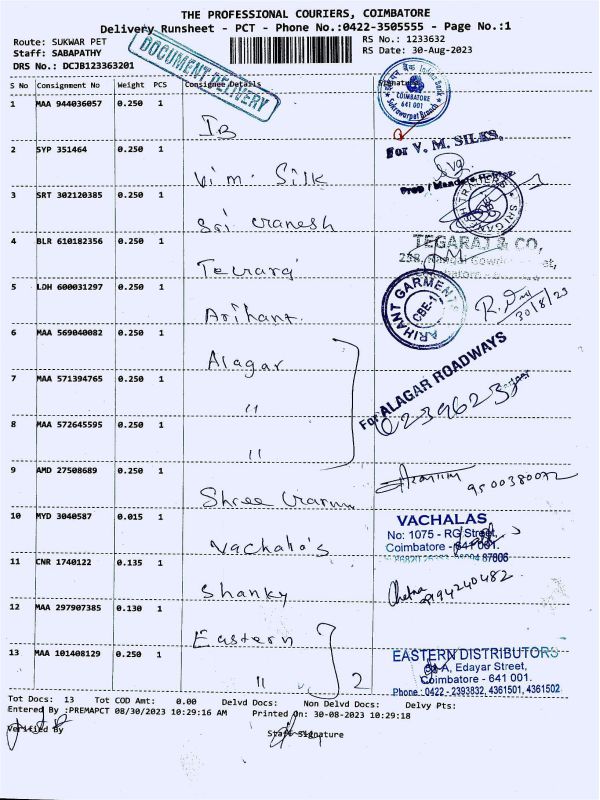 THE PROFESSIONAL COURIERS, COIMBATORE
Delivery Runsheet - PCT - Phone No.:0422-3505555 - Page No.:1
Route: SUKWAR PET
RS No.: 1233632
Staff: SABAPATHY
RS Date: 30-Aug-2023
DRS No.: DCJB123363201
DOCUMENT DELIVERY
S No Consignment No Weight PCS Consignee Details Signature
Indian Bank
COIMBATORE
641 001
Sukrawarpet Branch
1 MAA 944036057 0.250 1
IB
For V. M. SILKS,
2 SYP 351464 0.250 1
V.M. Silk
3 SRT 302120385 0.250 1
Sri Ganesh
4 BLR 610182356 0.250 1
TEGARAJ & CO,
Tegaraj
5 LDH 600031297 0.250 1
ARIHANT GARMENTS
CBE-1
30/8/23
Arihant
6 MAA 569040082 0.250 1
Alagar
For ALAGAR ROADWAYS
7 MAA 571394765 0.250 1
"
8 MAA 572645595 0.250 1
"
9 AMD 27508689 0.250 1
9500380072
Shree
10 MYD 3040587 0.015 1
VACHALAS
No: 1075 - RG Street,
Coimbatore - 641 001.
Vachala's
11 CNR 1740122 0.135 1
Shanky
Chetna
12 MAA 297907385 0.130 1
Eastern
13 MAA 101408129 0.250 1
" 2
EASTERN DISTRIBUTORS
Edayar Street,
Coimbatore - 641 001.
Phone : 0422 - 2393832, 4361501, 4361502
Tot Docs: 13 Tot COD Amt: 0.00 Delvd Docs: Non Delvd Docs: Delvy Pts:
Entered By :PREMAPCT 08/30/2023 10:29:16 AM Printed On: 30-08-2023 10:29:18
Verified By Staff Signature